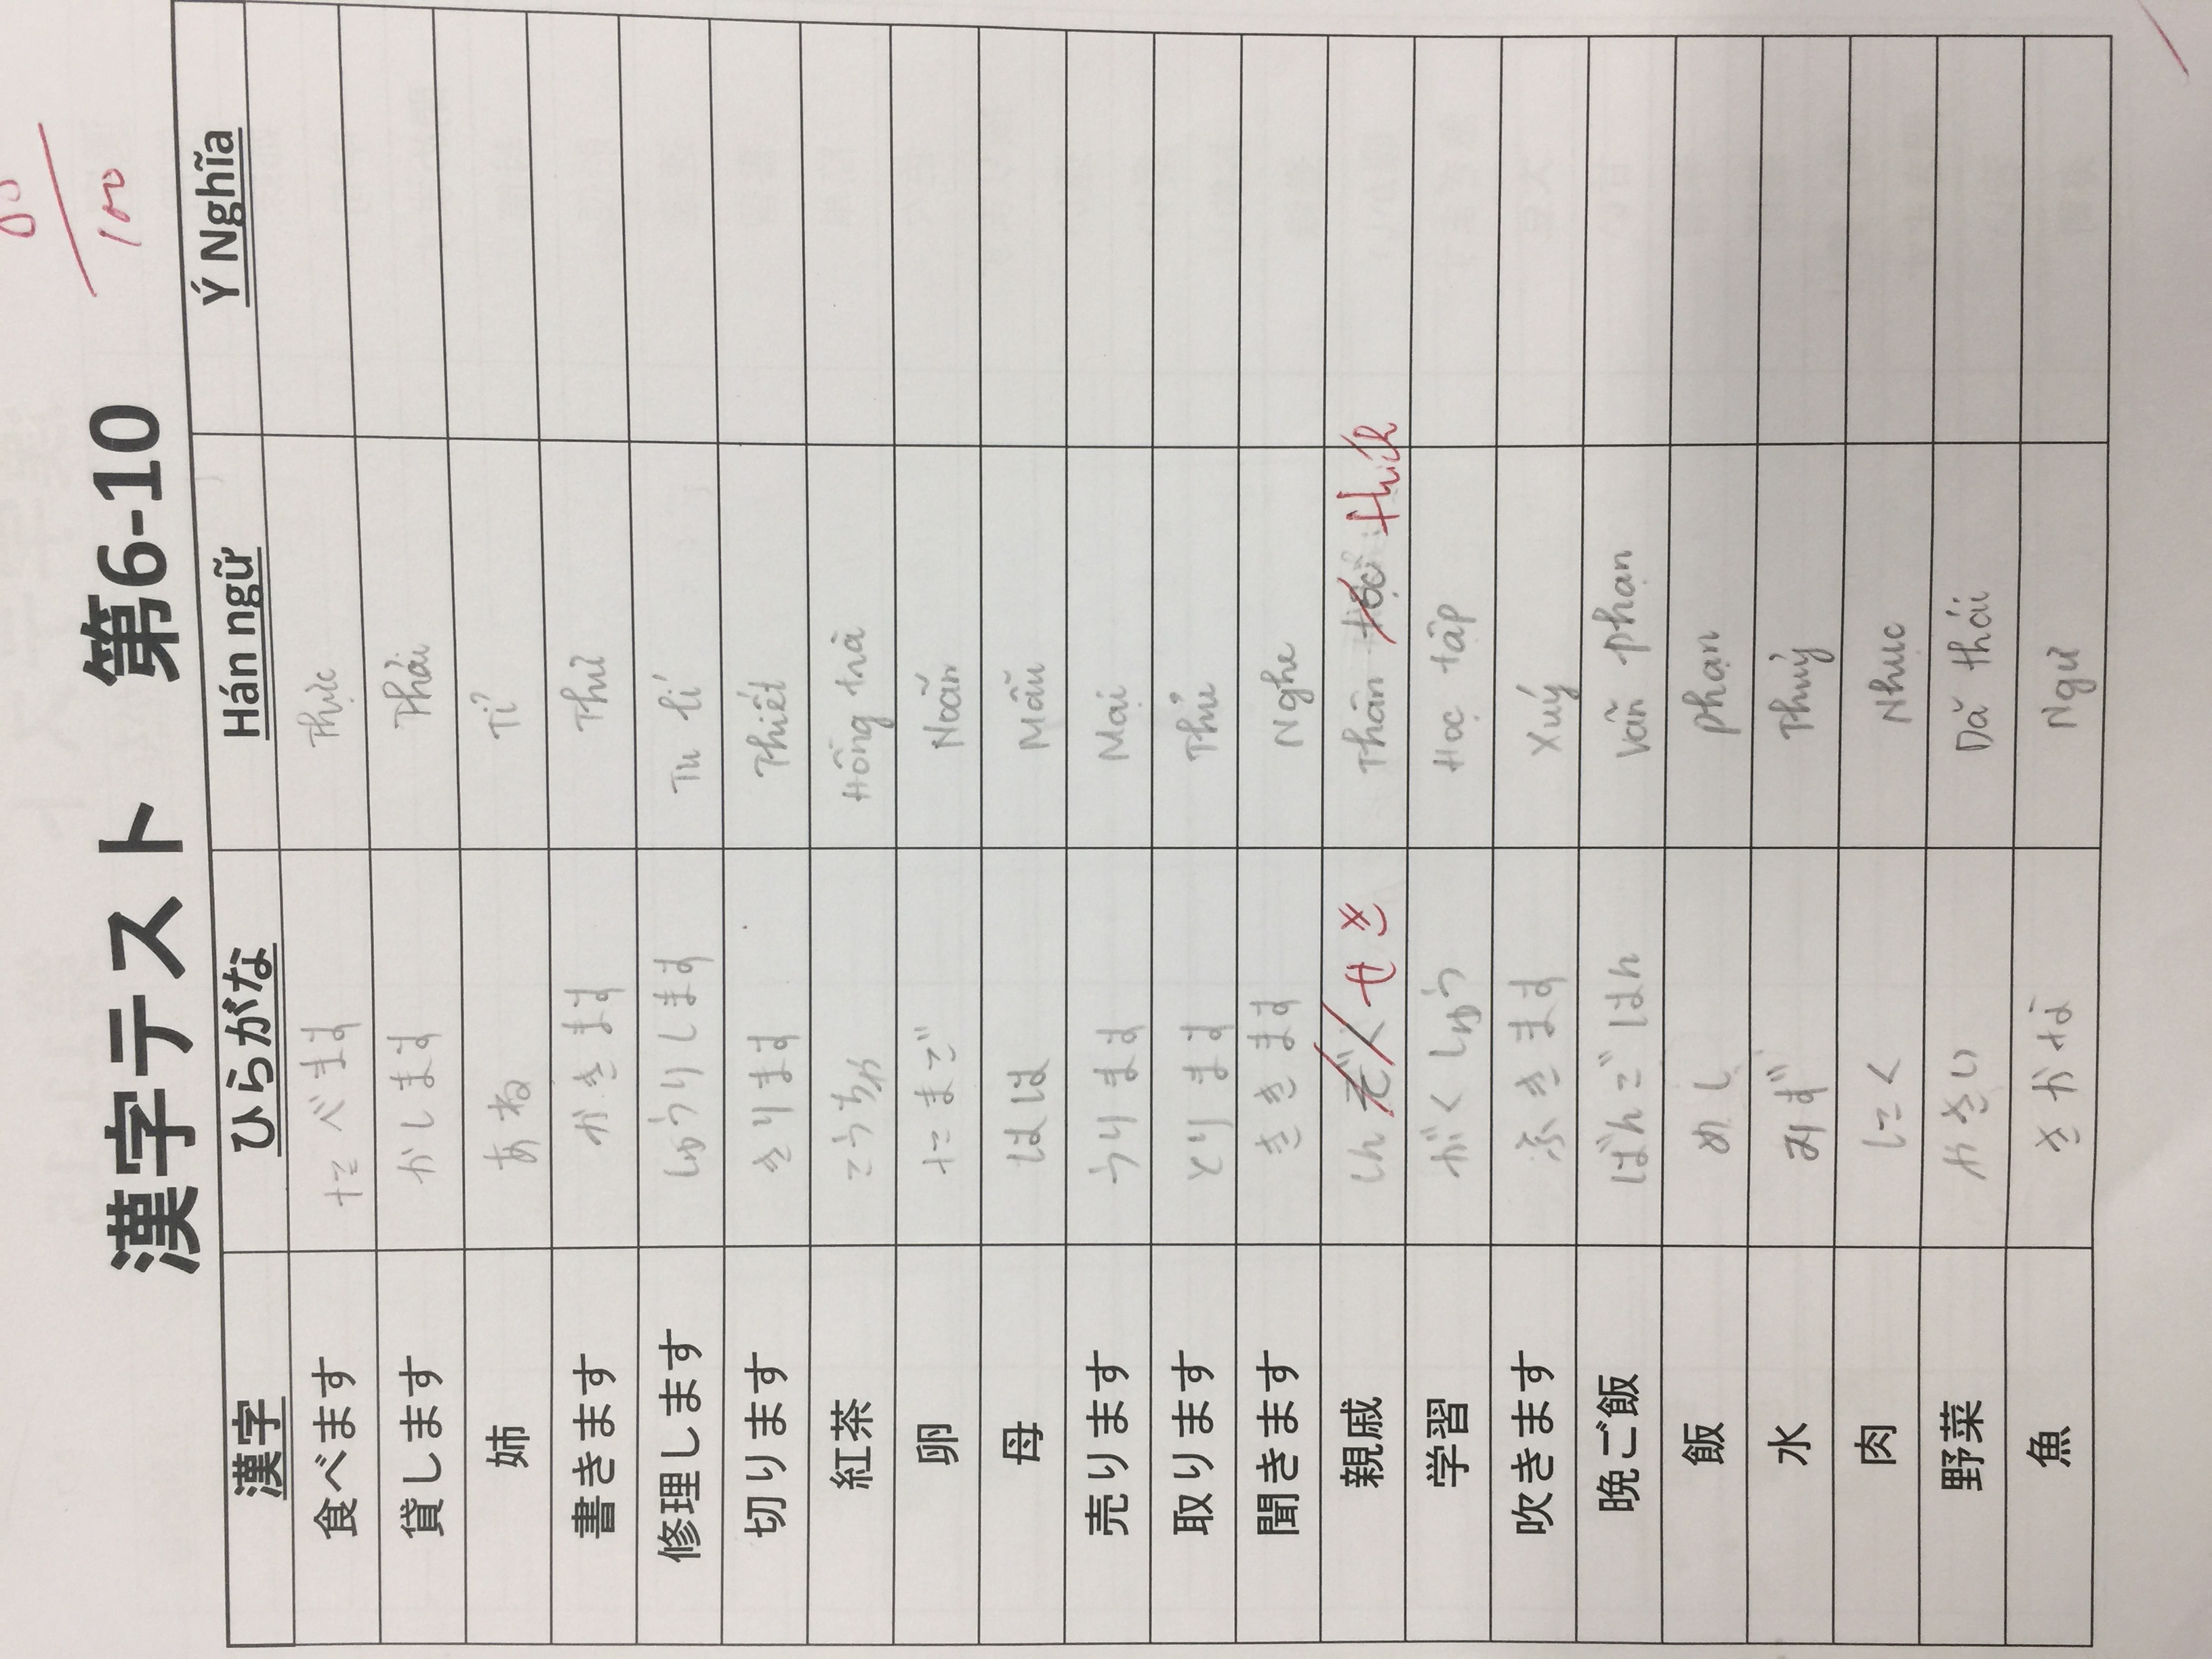 100
漢字テスト 第6-10
漢字 ひらがな Hán ngữ Ý Nghĩa
食べます たべます Thực
貸します かします Thải
姉 あね Tỉ
書きます かきます Thư
修理します しゅうりします Tu lí
切ります きります Thiết
紅茶 こうちゃ Hồng trà
卵 たまご Noãn
母 はは Mẫu
売ります うります Mại
取ります とります Thủ
聞きます ききます Nghe
親戚 しんぞく せき Thân tộc thích
学習 がくしゅう Học tập
吹きます ふきます Xuý
晩ご飯 ばんごはん Vãn phạn
飯 めし phạn
水 みず Thuỷ
肉 にく Nhục
野菜 やさい Dã thái
魚 さかな Ngư